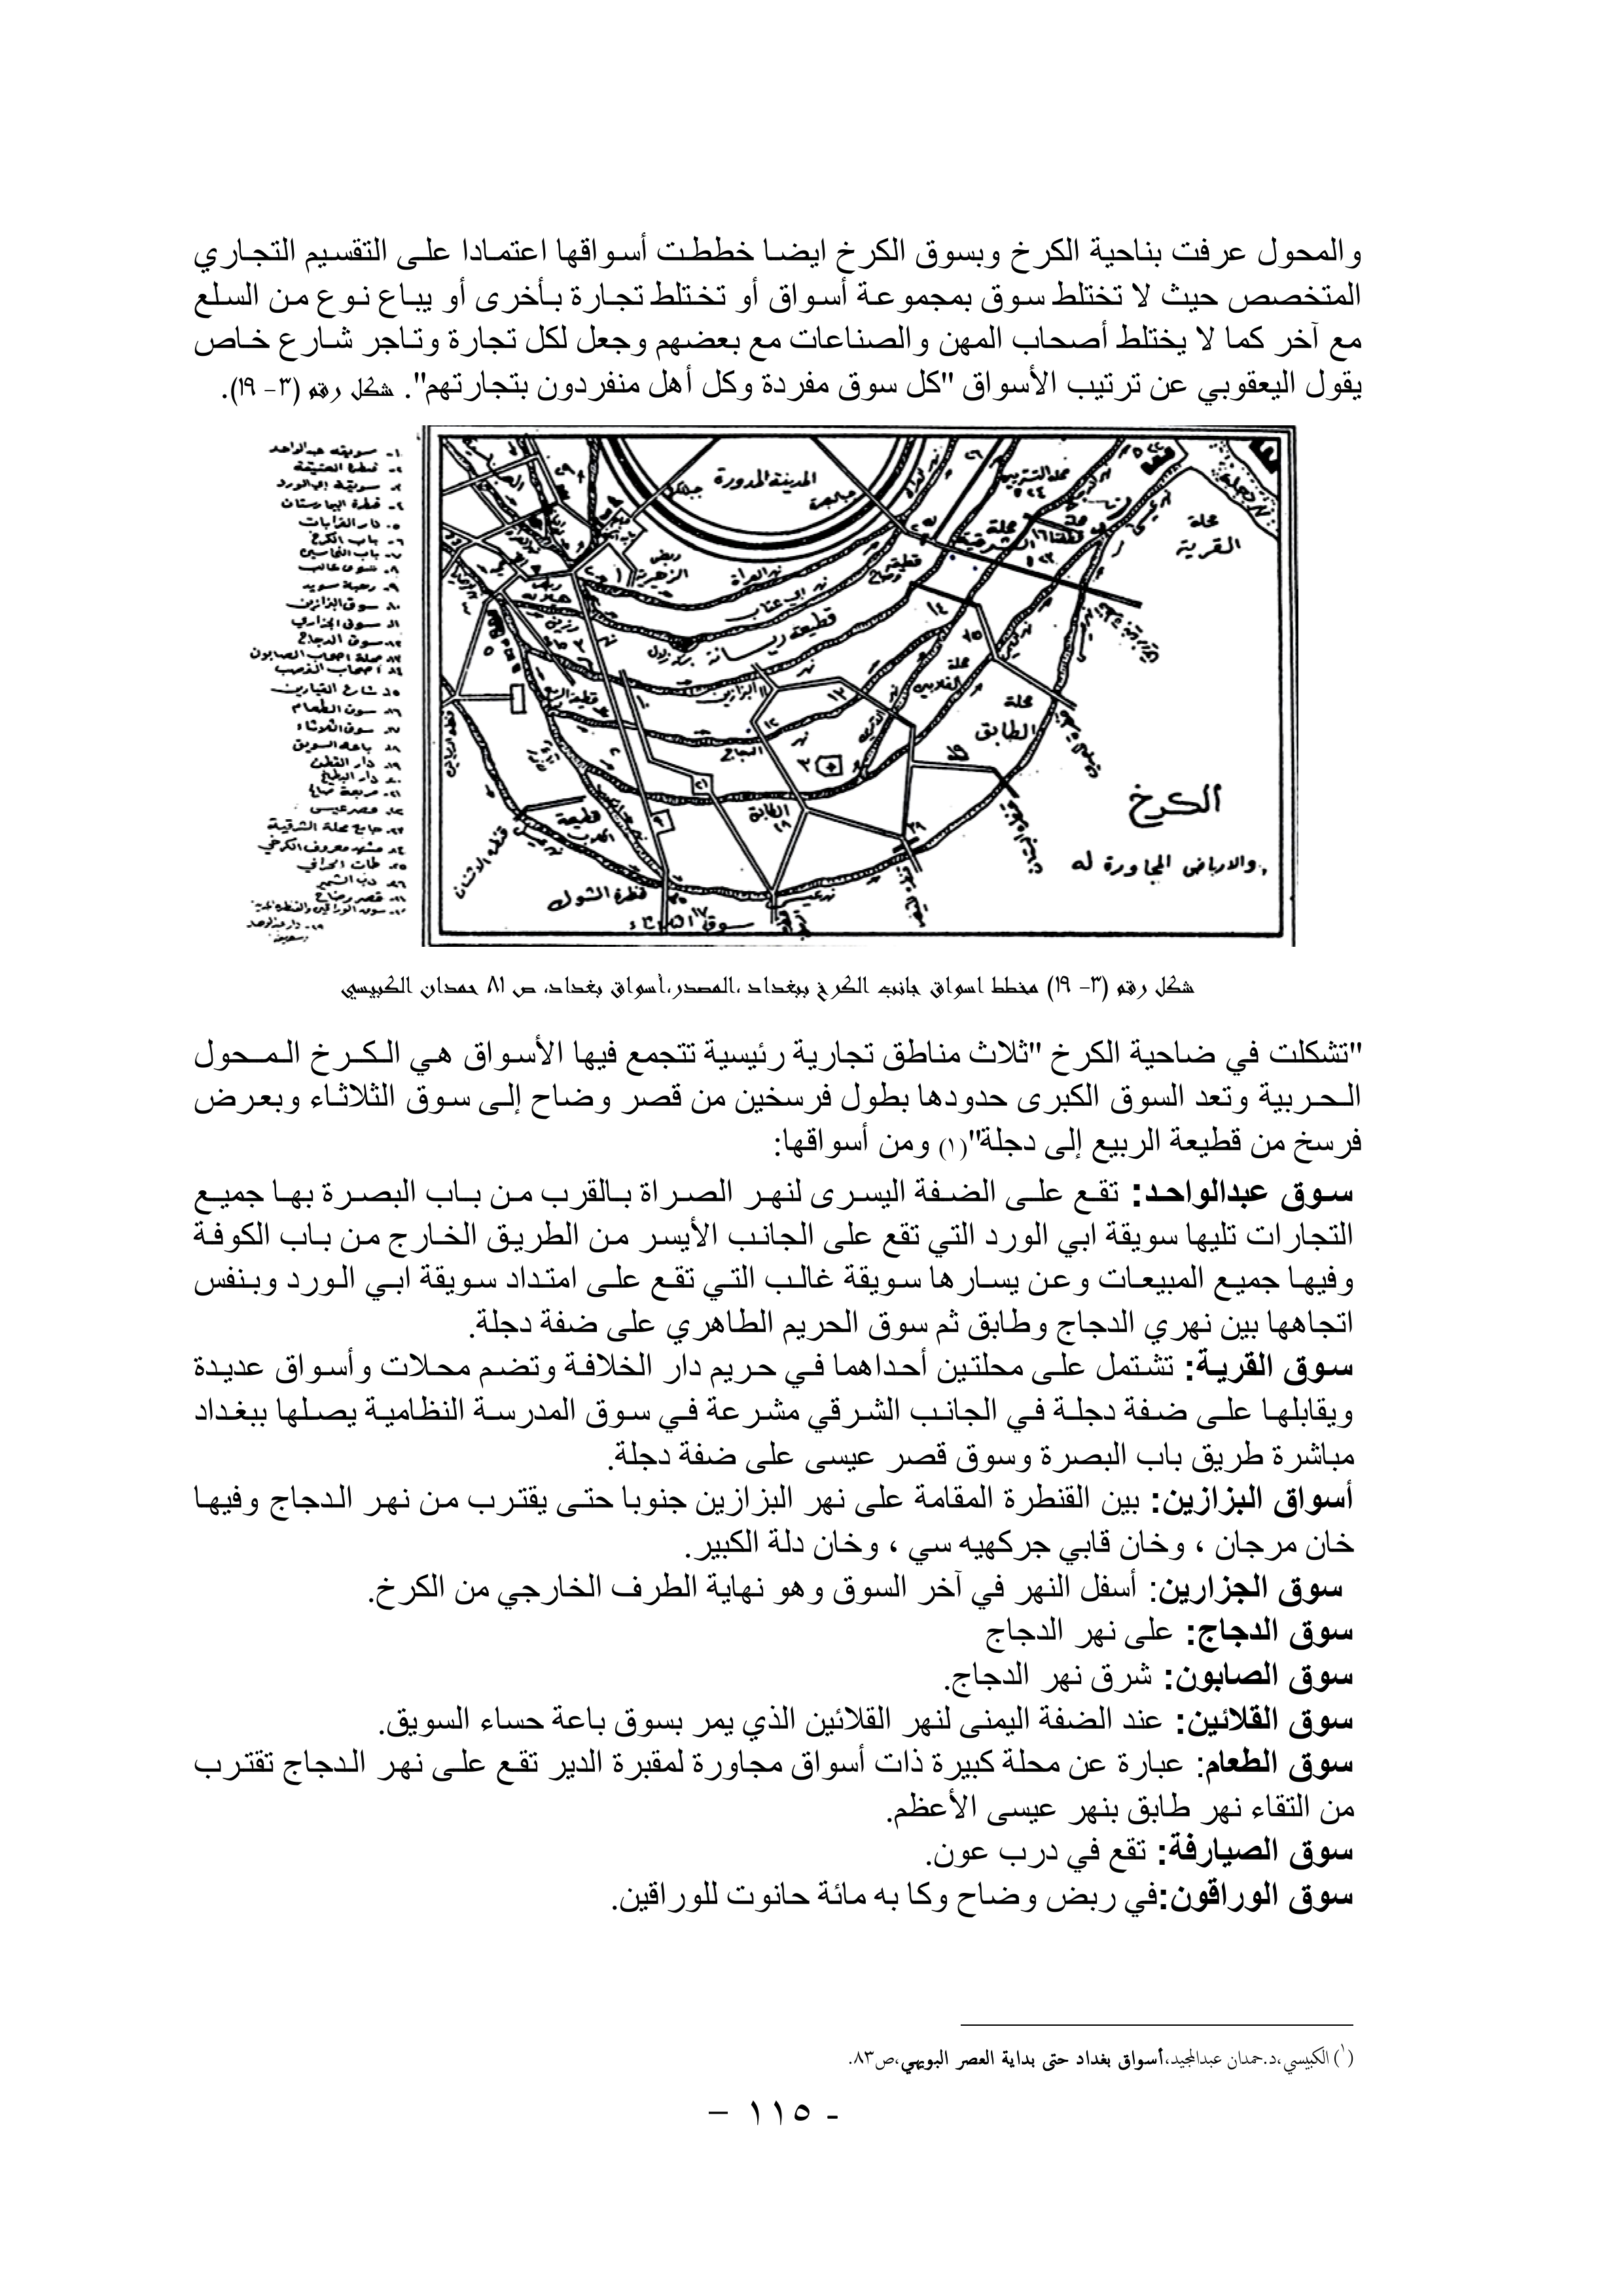 والمحول عرفت بناحية الكرخ وبسوق الكرخ ايضا خططت أسواقها اعتمادا على التقسيم التجاري
المتخصص حيث لا تختلط سوق بمجموعة أسواق أو تختلط تجارة بأخرى أو يباع نوع من السلع
مع آخر كما لا يختلط أصحاب المهن والصناعات مع بعضهم وجعل لكل تجارة وتاجر شارع خاص
يقول اليعقوبي عن ترتيب الأسواق "كل سوق مفردة وكل أهل منفردون بتجارتهم". شكل رقم (٣- ١٩).
١- سويقه عبدالواحد
٢- قنطرة العتيقة
٣- سويقة ابي الورد
٤- قنطرة البيمارستان
٦- باب الكرخ
٧- باب النخاسين
٩- رحبة سويد
١٠- سوق البزازين
١٢- سوق الدجاج
١٤- اصحاب القصب
١٥- شارع القيارين
١٦- سوق الطعام
١٧- سوق الثلاثاء
١٨- باعه السويق
١٩- دار القطن
٢٠- دار البطيخ
٢٢- قصر عيسى
٢٣- جامع محلة الشرقية
٢٤- مشهد معروف الكرخي
٢٥- طاق الحراني
المدينة المدورة
محلة القرية
ربض الزهيرية
نهر الصراة
نهر ابي عتاب
قطيعة ريسانة
محلة الطابق
الكرخ
والاراض المجاورة له
قنطرة الشوك
سوق الثلاثاء
شكل رقم (٣- ١٩) مخطط اسواق جانب الكرخ ببغداد ،المصدر،أسواق بغداد، ص ٨١ حمدان الكبيسي
"تشكلت في ضاحية الكرخ "ثلاث مناطق تجارية رئيسية تتجمع فيها الأسواق هي الكرخ المحول
الحربية وتعد السوق الكبرى حدودها بطول فرسخين من قصر وضاح إلى سوق الثلاثاء وبعرض
فرسخ من قطيعة الربيع إلى دجلة"(١) ومن أسواقها:
سوق عبدالواحد: تقع على الضفة اليسرى لنهر الصراة بالقرب من باب البصرة بها جميع
التجارات تليها سويقة ابي الورد التي تقع على الجانب الأيسر من الطريق الخارج من باب الكوفة
وفيها جميع المبيعات وعن يسارها سويقة غالب التي تقع على امتداد سويقة ابي الورد وبنفس
اتجاهها بين نهري الدجاج وطابق ثم سوق الحريم الطاهري على ضفة دجلة.
سوق القرية: تشتمل على محلتين أحداهما في حريم دار الخلافة وتضم محلات وأسواق عديدة
ويقابلها على ضفة دجلة في الجانب الشرقي مشرعة في سوق المدرسة النظامية يصلها ببغداد
مباشرة طريق باب البصرة وسوق قصر عيسى على ضفة دجلة.
أسواق البزازين: بين القنطرة المقامة على نهر البزازين جنوبا حتى يقترب من نهر الدجاج وفيها
خان مرجان ، وخان قابي جركهيه سي ، وخان دلة الكبير.
سوق الجزارين: أسفل النهر في آخر السوق وهو نهاية الطرف الخارجي من الكرخ.
سوق الدجاج: على نهر الدجاج
سوق الصابون: شرق نهر الدجاج.
سوق القلائين: عند الضفة اليمنى لنهر القلائين الذي يمر بسوق باعة حساء السويق.
سوق الطعام: عبارة عن محلة كبيرة ذات أسواق مجاورة لمقبرة الدير تقع على نهر الدجاج تقترب
من التقاء نهر طابق بنهر عيسى الأعظم.
سوق الصيارفة: تقع في درب عون.
سوق الوراقون:في ربض وضاح وكا به مائة حانوت للوراقين.
(١) الكبيسي،د.حمدان عبدالمجيد،أسواق بغداد حتى بداية العصر البويهي،ص٨٣.
- ١١٥ –